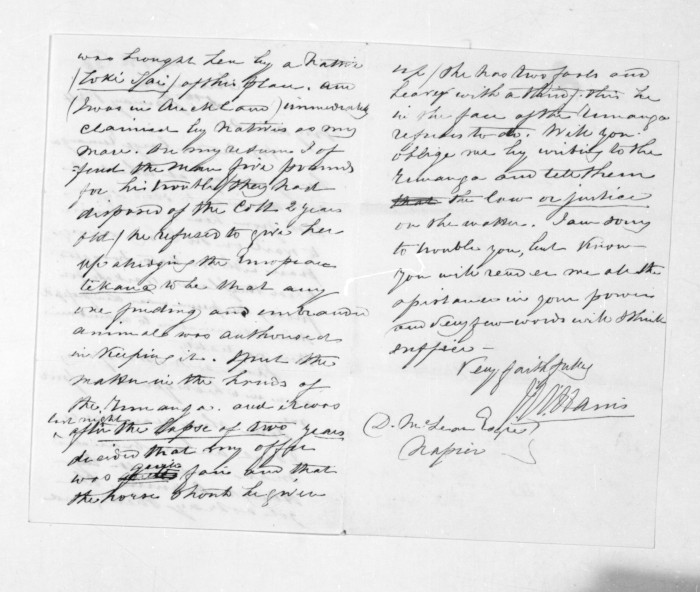 was brought here by a Native
(Toki Mai) of this place. and
(I was in Auckland) immediately
claimed by Natives as my
mare. On my return I of
=fered the man five pounds
for his trouble (they had
disposed of the Colt 2 years
old) he refused to give her
up alledging the European
tekana to be that any
one finding and unbranded
animal was authorised
in keeping it. I put the
matter in the hands of
the Runanga. and it was
last night
after the lapse of two years
decided that my offer
was fair and that
the horse should be given
up (she has two foals and
heavy with a third) this he
in the face of the Runanga
refuses to do. Will you
oblige me by writing to the
Runanga and tell them
that the law or justice
on the matter. I am sorry
to trouble you, but know
you will render me all the
assistance in your power
and very few words will I think
suffice –
Very faithfully
Harris
D. McLean Esqre
Napier